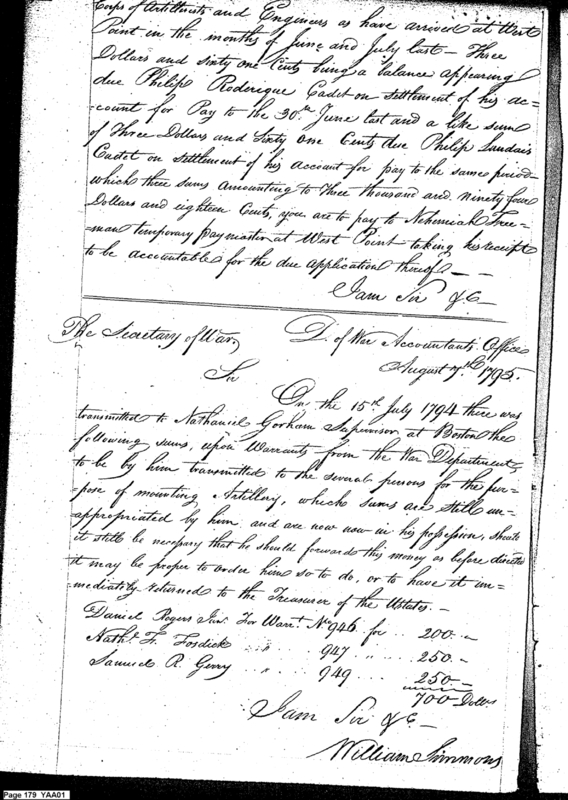 Corps of Artillerists and Engineers as have arrived at West
Point in the months of June and July last — Three
Dollars and Sixty one Cents being a balance appearing
due Philip Roderique Cadet on settlement of his ac=
=count for Pay to the 30th June last and a like sum
of Three Dollars and Sixty one Cents due Philip Landais
Cadet on settlement of his account for pay to the same period —
which three sums amounting to Three thousand and ninety four
Dollars and eighteen Cents, you are to pay to Nehemiah Free=
=man temporary paymaster at West Point taking his receipt
to be accountable for the due application thereof — —
I am Sir &C
The Secretary of War,
D. of War Accountants Office
August 7th 1795.
Sir
On the 15th July 1794 there was
transmitted to Nathaniel Gorham Supervisor at Boston the
following sums, upon Warrants from the War Department,
to be by him transmitted to the several persons for the pur=
=pose of mounting Artillery, which sums are still un=
=appropriated by him and are now now in his possession, should
it still be necessary that he should forward this money as before directed
it may be proper to order him so to do, or to have it im=
=mediately returned to the Treasurer of the Ustates. —
Daniel Rogers Junr. For Warrt. No 946 for .. 200. —
Nathl. F. Fosdick " " 947 " .. 250. —
Samuel R. Gerry " " 949 .... 250 —
700 Dollars
I am Sir &C —
William Simmons
Page 179 YAA01